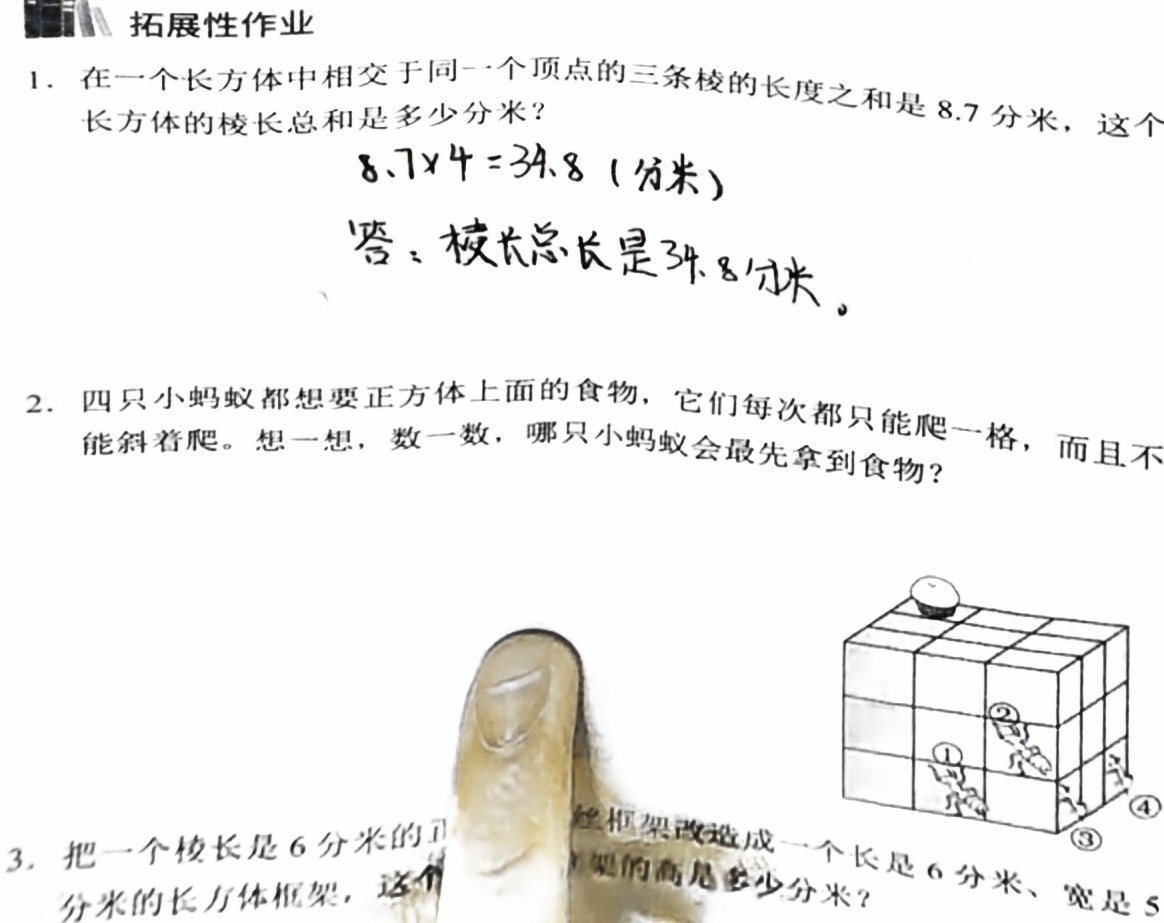 拓展性作业
1. 在一个长方体中相交于同一个顶点的三条棱的长度之和是 8.7 分米，这个
长方体的棱长总和是多少分米？
8.7×4=34.8（分米）
答：棱长总长是34.8分米。
2. 四只小蚂蚁都想要正方体上面的食物，它们每次都只能爬一格，而且不
能斜着爬。想一想，数一数，哪只小蚂蚁会最先拿到食物？
②
①
④
③
3. 把一个棱长是 6 分米的正 框架改造成一个长是 6 分米、宽是 5
分米的长方体框架，这个 架的高是多少分米？